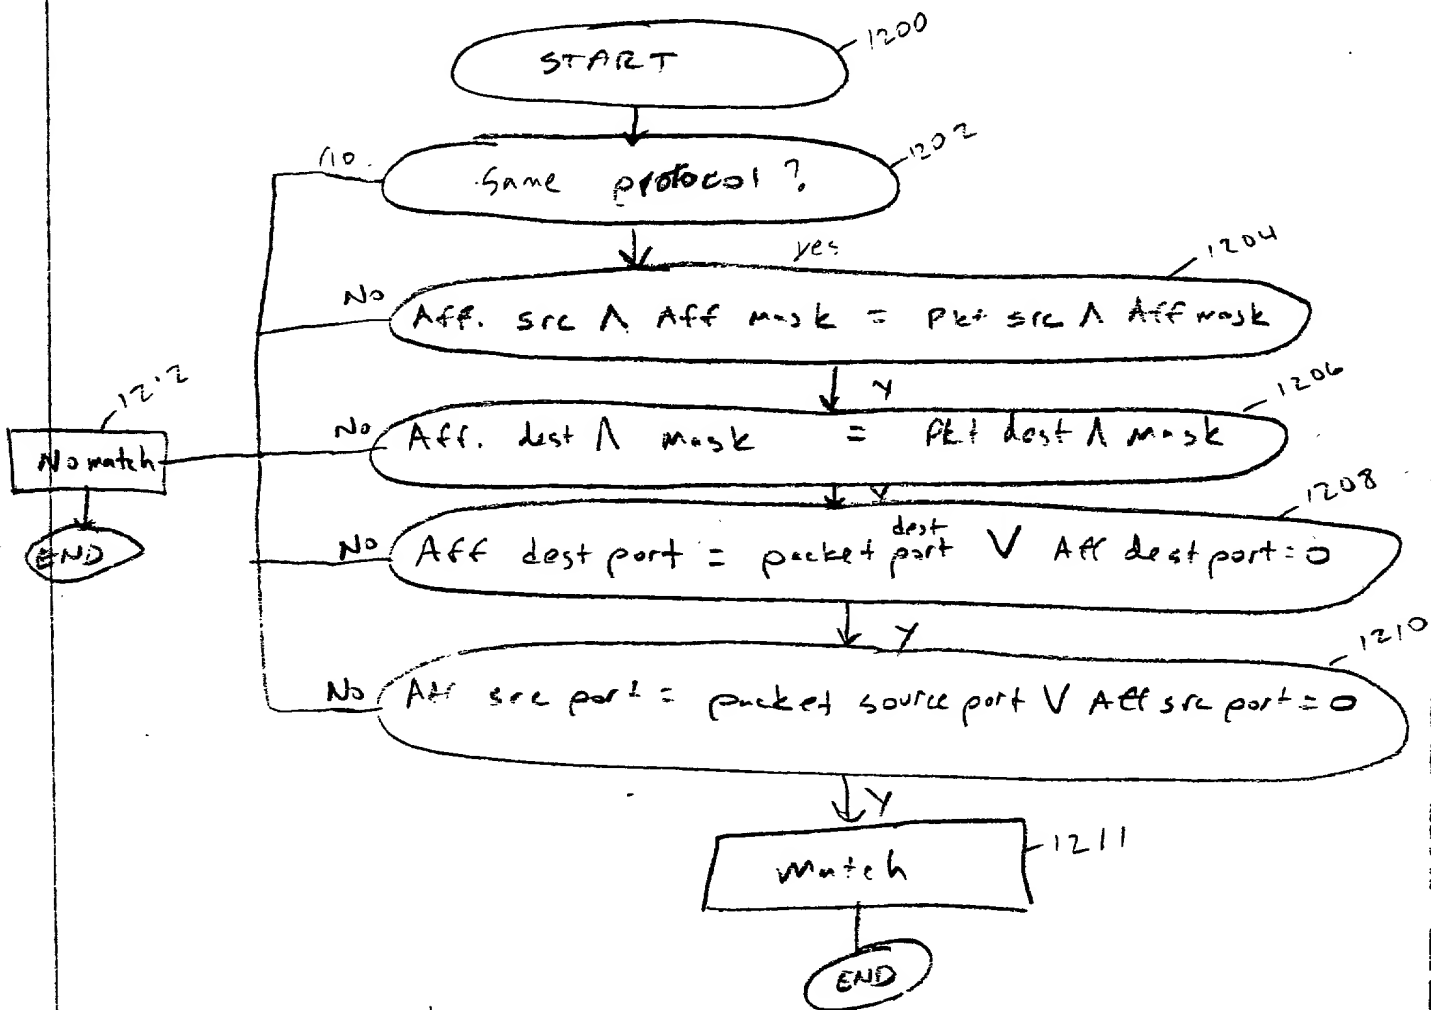 START
1200
no.
Same protocol ?
1202
yes
1204
No
Aff. src Λ Aff mask = Pkt src Λ Aff mask
Y
1206
1212
No match
END
No
Aff. dest Λ mask = Pkt dest Λ mask
Y
1208
No
Aff dest port = packet dest port V Aff dest port = 0
Y
1210
No
Aff src port = packet source port V Aff src port = 0
Y
Match
1211
END